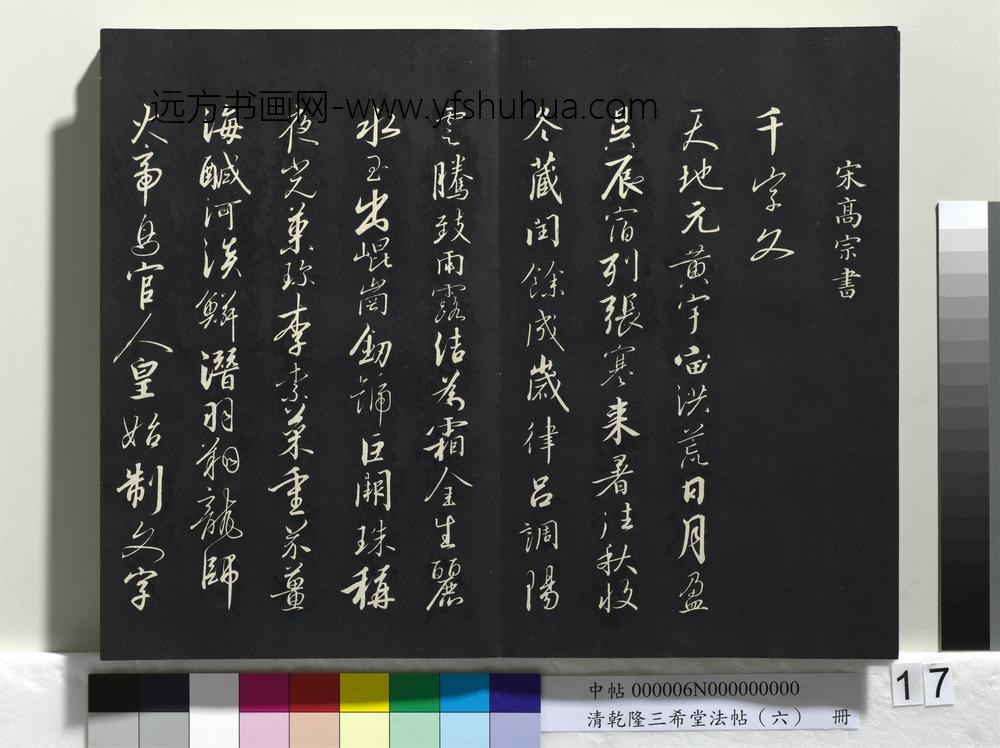 宋高宗書
千字文
天地元黄宇宙洪荒日月盈
昃辰宿列張寒来暑往秋收
冬藏閏餘成歲律呂調陽
雲騰致雨露結為霜金生麗
水玉出崐崗劒號巨闕珠稱
夜光菓珎李柰菜重芥薑
海鹹河淡鱗潛羽翔龍師
火帝鳥官人皇始制文字
远方书画网-www.yfshuhua.com
17
中帖 000006N000000000
清乾隆三希堂法帖（六） 冊